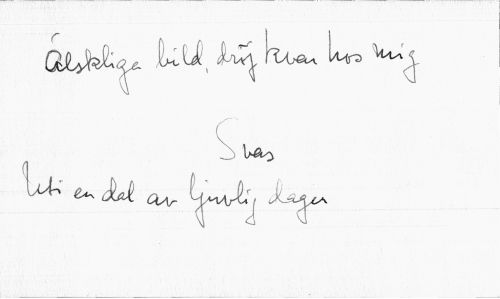 Älskliga bild, dröj kvar hos mig
Svar
Uti en dal av ljuvlig dager